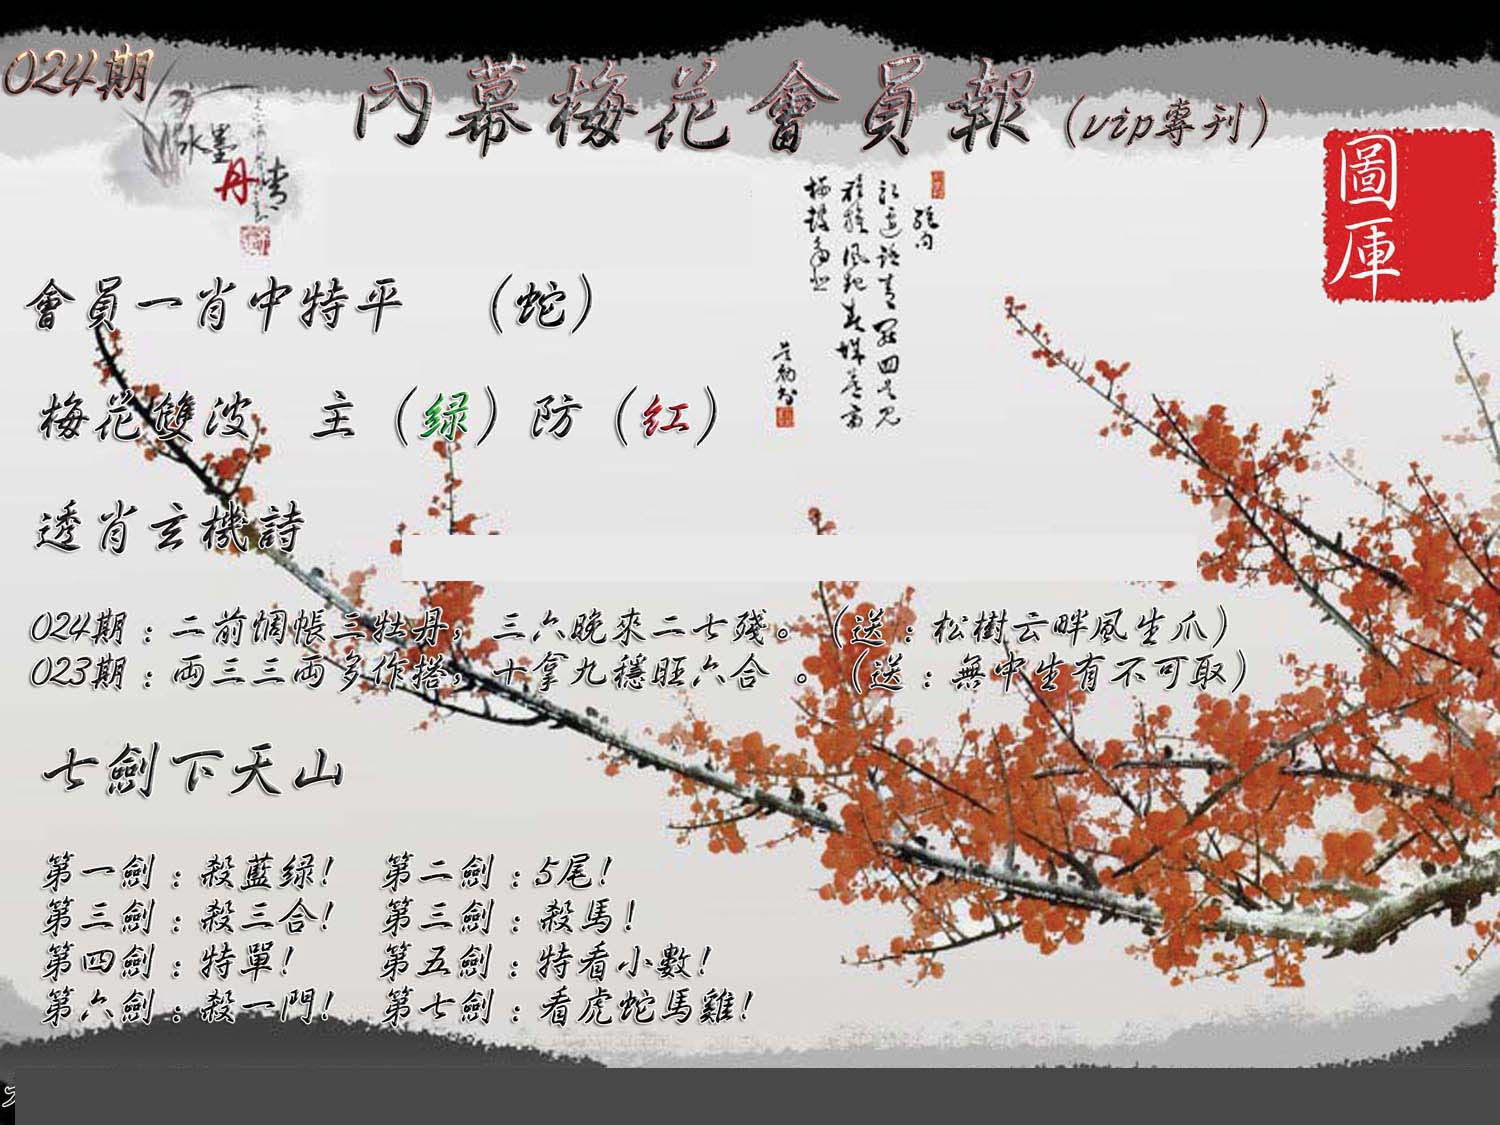 024期
內幕梅花會員報（vip專刊）
水墨
丹青
圖庫
會員一肖中特平 （蛇）
梅花雙波 主（绿）防（红）
透肖玄機詩
024期：二前惆帳三牡丹，三六晚來二七殘。（送：松樹云畔風生爪）
023期：両三三両多作搭，十拿九穩旺六合 。（送：無中生有不可取）
七劍下天山
第一劍：殺藍绿! 第二劍：5尾!
第三劍：殺三合! 第三劍：殺馬!
第四劍：特單! 第五劍：特看小數!
第六劍：殺一門! 第七劍：看虎蛇馬雞!